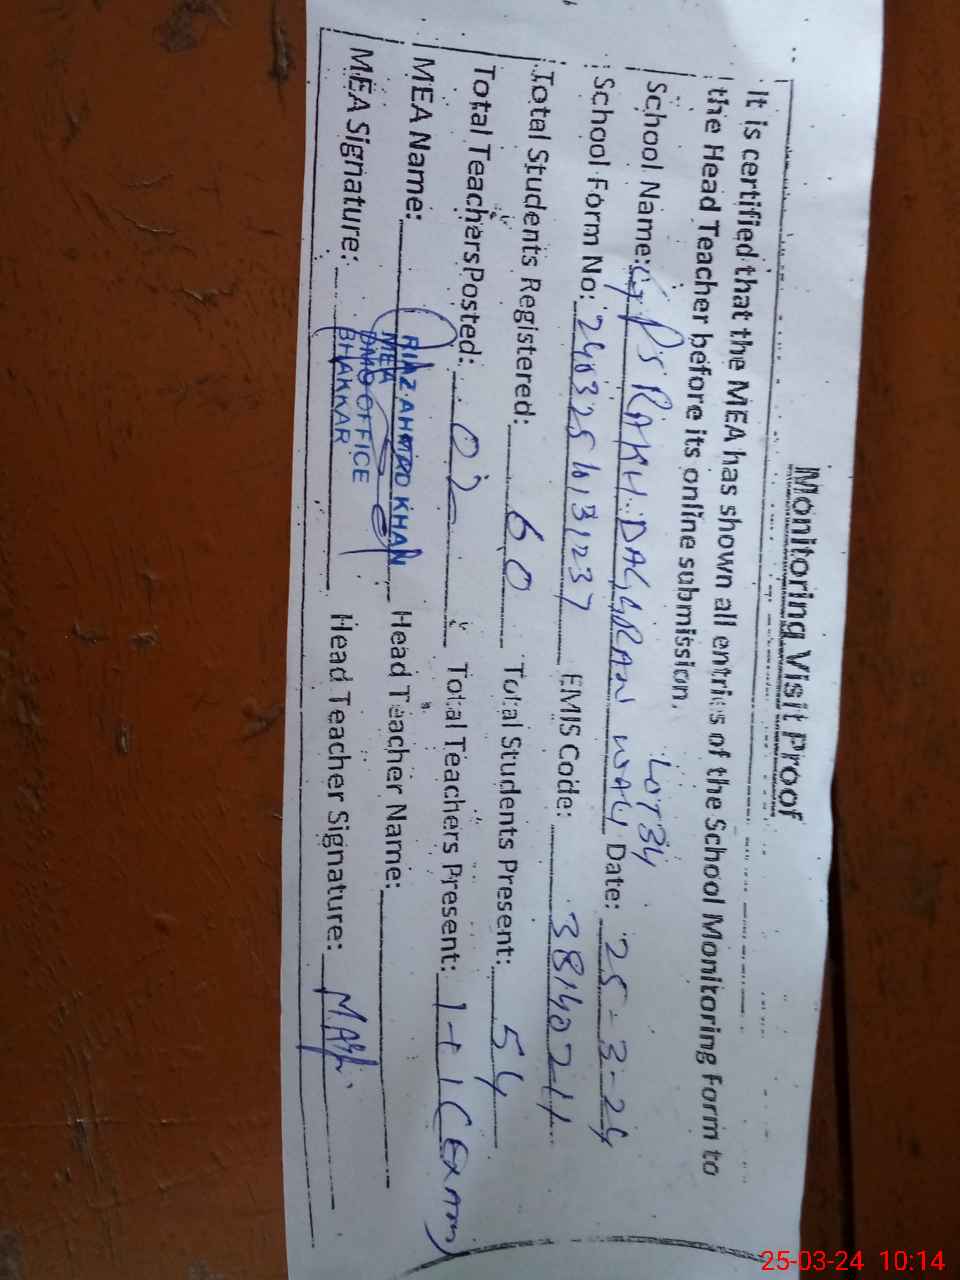 Monitoring Visit Proof
It is certified that the MEA has shown all entries of the School Monitoring Form to
the Head Teacher before its online submission.
LOT 34
School Name: GPS RAKH DAGGRAN WALI Date: 25-3-24
School Form No: EMIS Code: 38140211
Total Students Registered: 60 Total Students Present: 54
Total TeachersPosted: 02 Total Teachers Present: 1+1(Exam)
MEA Name: RIAZ AHMED KHAN Head Teacher Name:
MEA
DMO OFFICE
BHAKKAR
MEA Signature: Head Teacher Signature:
25-03-24 10:14